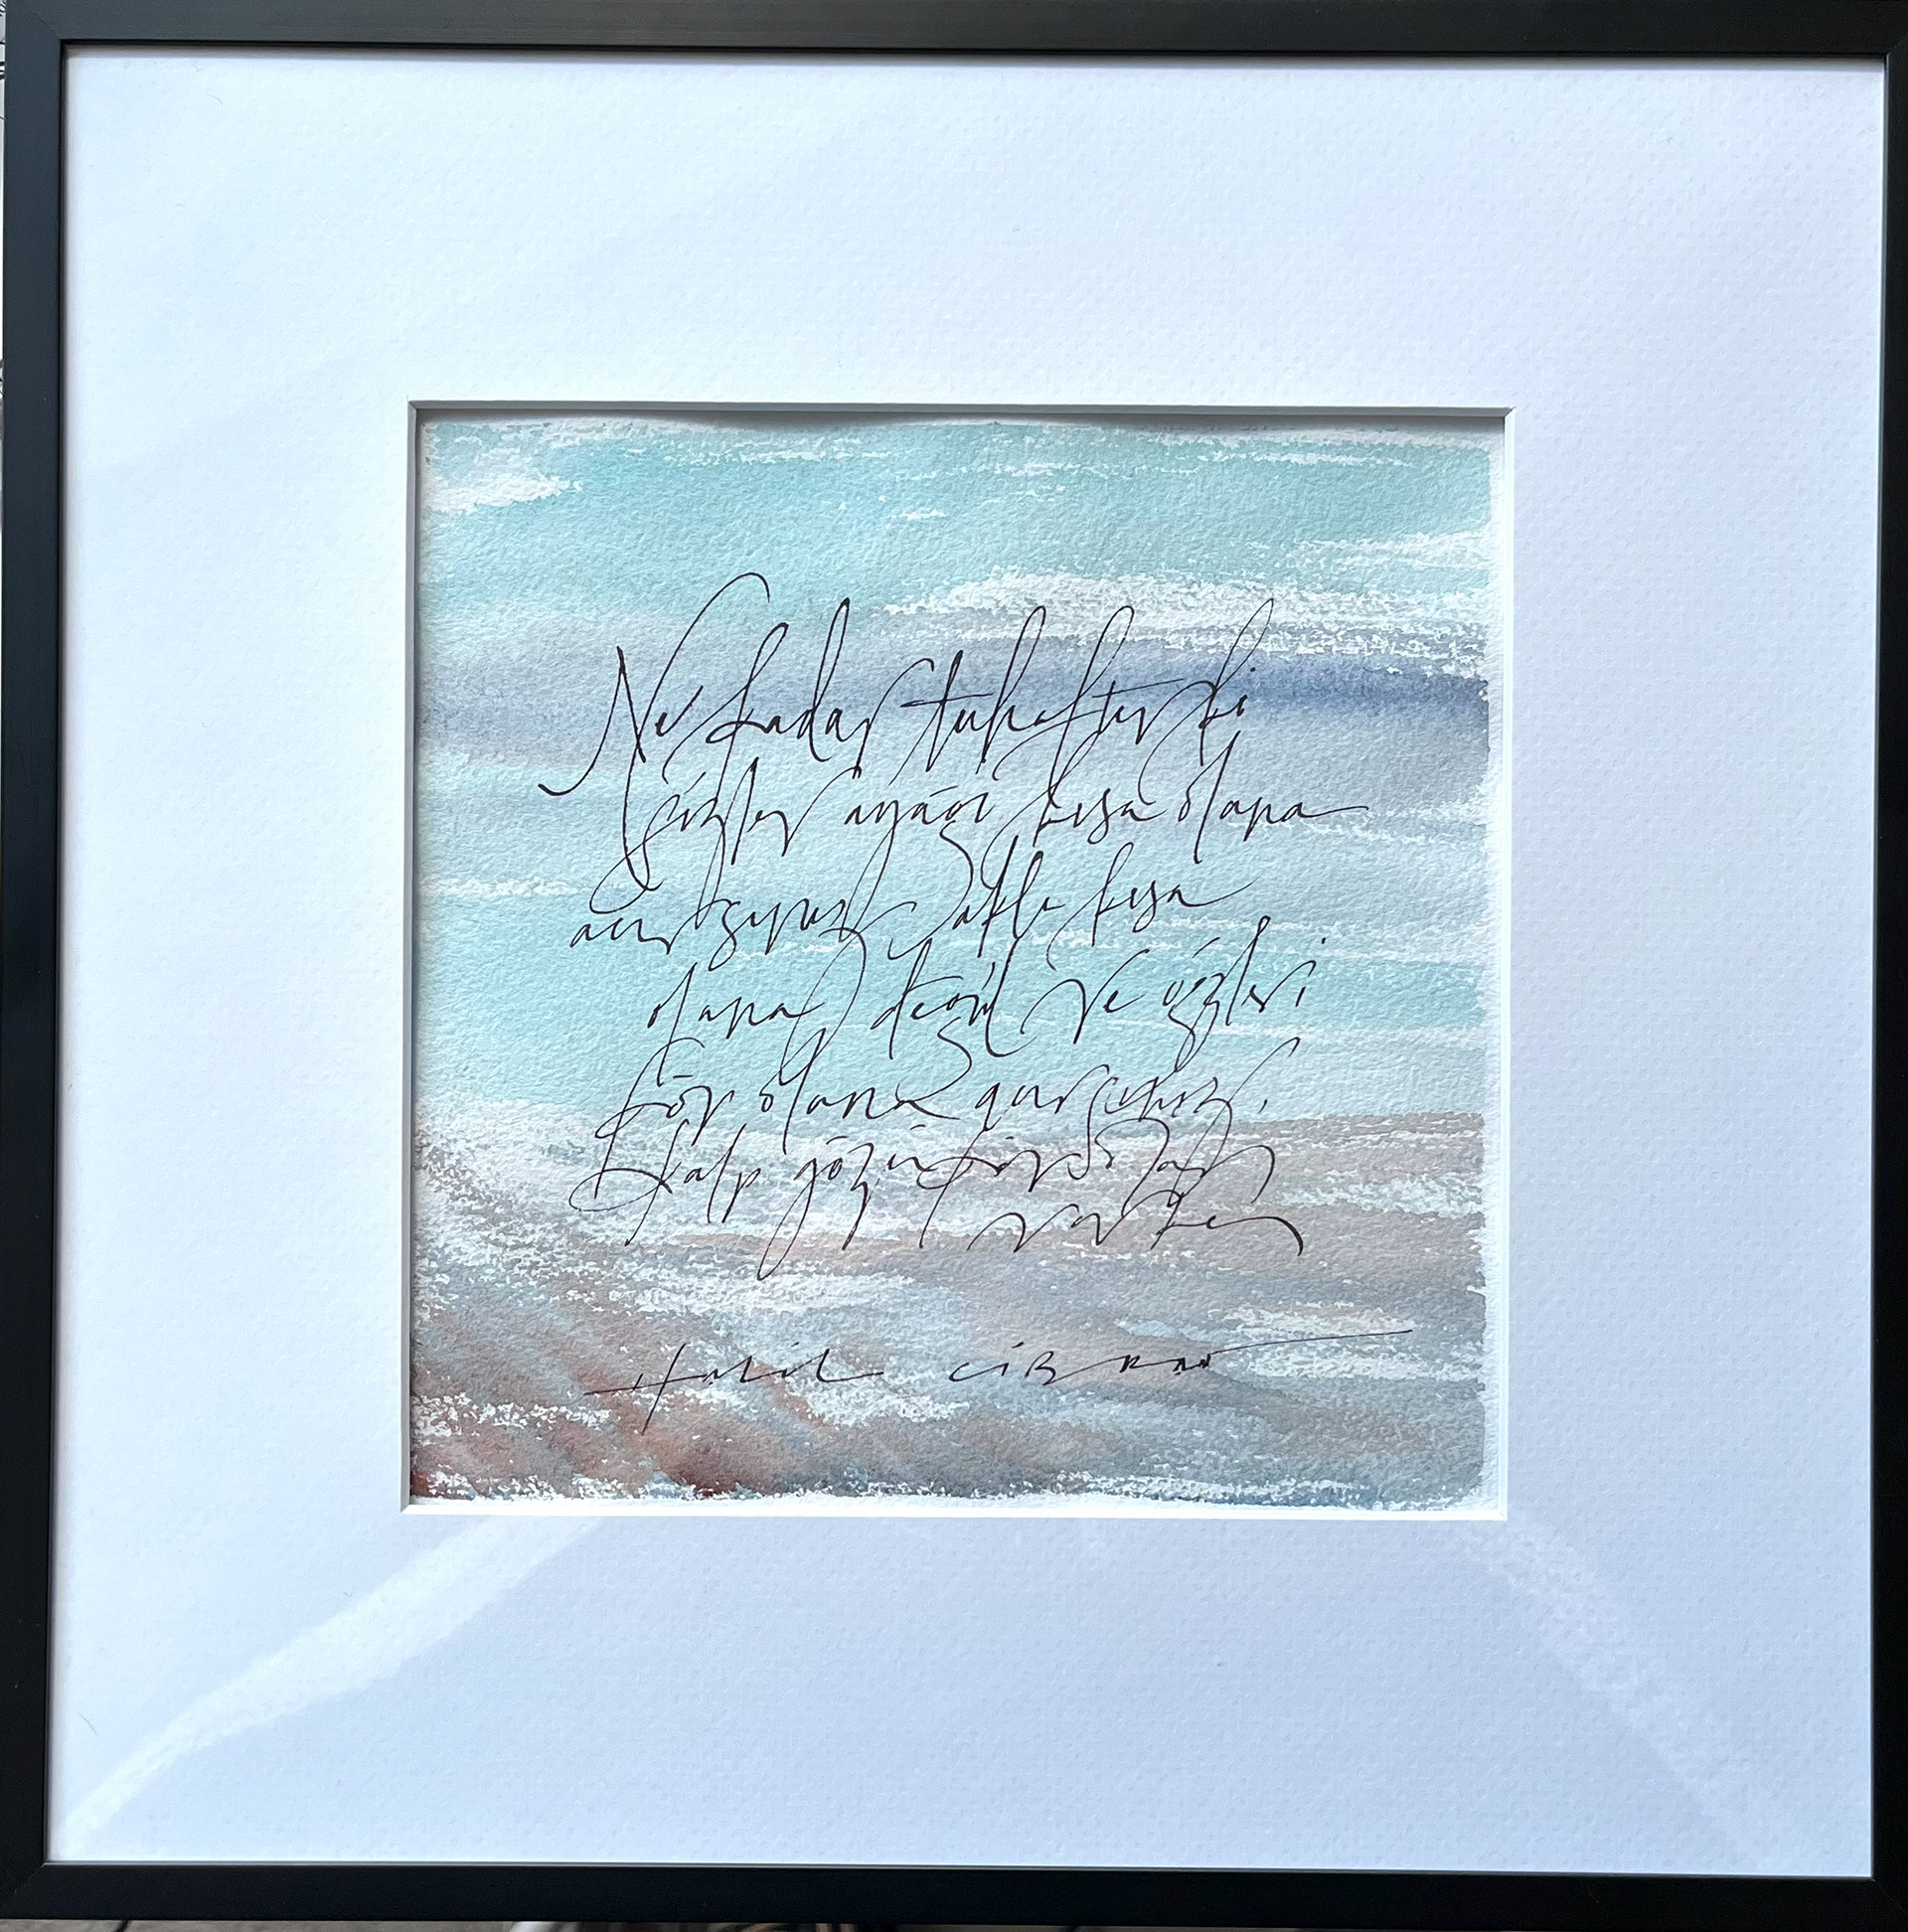 Ne kadar tuhaftır ki
bizler ayağı kısa olana
acırız, aklı kısa
olana değil ve gözleri
kör olana acırız,
kalp gözü kör olanlar
varken
HALİL CİBRAN